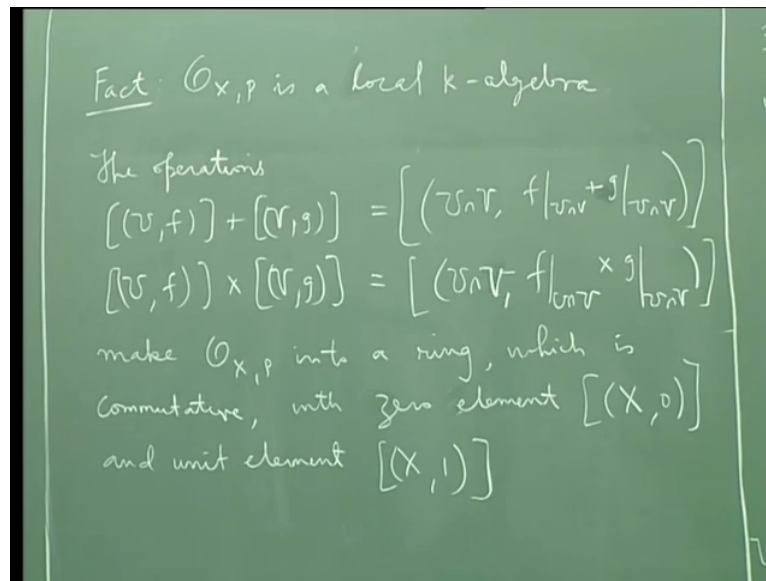 Fact: 𝒪_{X,P} is a local k-algebra
The operations
[(U,f)] + [(V,g)] = [(U∩V, f|_{U∩V} + g|_{U∩V})]
[(U,f)] × [(V,g)] = [(U∩V, f|_{U∩V} × g|_{U∩V})]
make 𝒪_{X,P} into a ring, which is
commutative, with zero element [(X,0)]
and unit element [(X,1)]